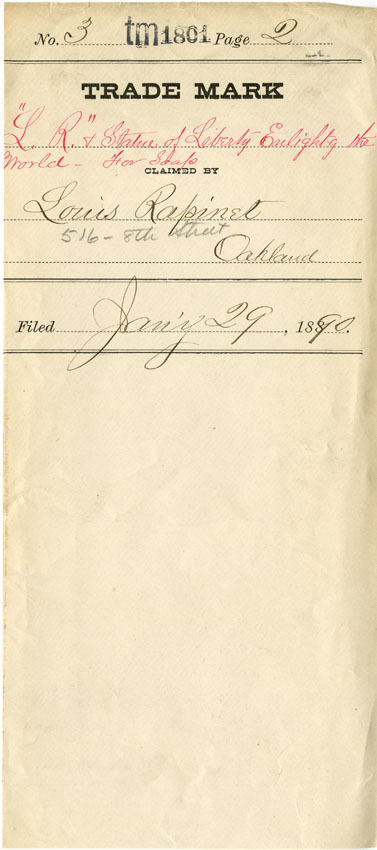 No. 3 tm1801 Page 2
TRADE MARK
"L. R." & Statue of Liberty Enlightg the
World - For Soap
CLAIMED BY
Louis Rapinet
516 - 8th Street
Oakland
Filed Jan'y 29, 1890.